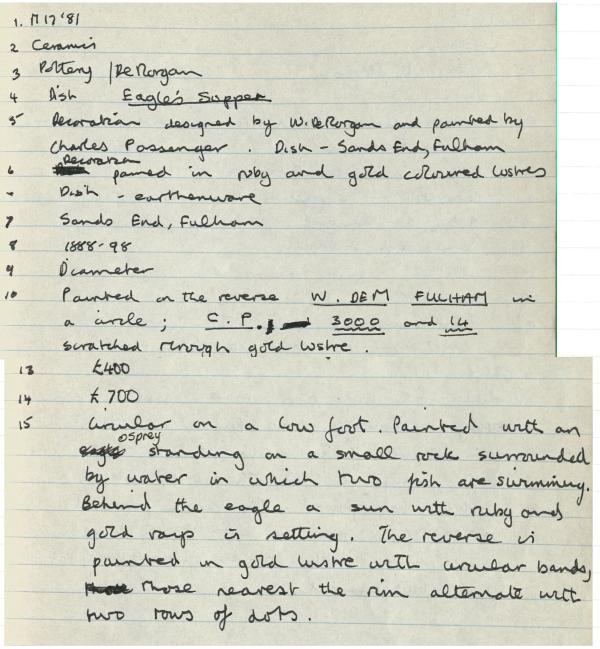 1. M 17 '81
2 Ceramics
3 Pottery / De Morgan
4 Dish Eagle's Supper
5 Decoration designed by W. De Morgan and painted by
Charles Passenger. Dish - Sands End, Fulham
Decoration
6 painted in ruby and gold coloured lustres
Dish - earthenware
7 Sands End, Fulham
8 1888-98
9 Diameter
10 Painted on the reverse W. DE M FULHAM in
a circle; C. P. 3000 and 14
scratched through gold lustre.
13 £400
14 £700
15 Circular on a low foot. Painted with an
osprey
eagle standing on a small rock surrounded
by water in which two fish are swimming.
Behind the eagle a sun with ruby and
gold rays is setting. The reverse is
painted in gold lustre with circular bands,
those those nearest the rim alternate with
two rows of dots.